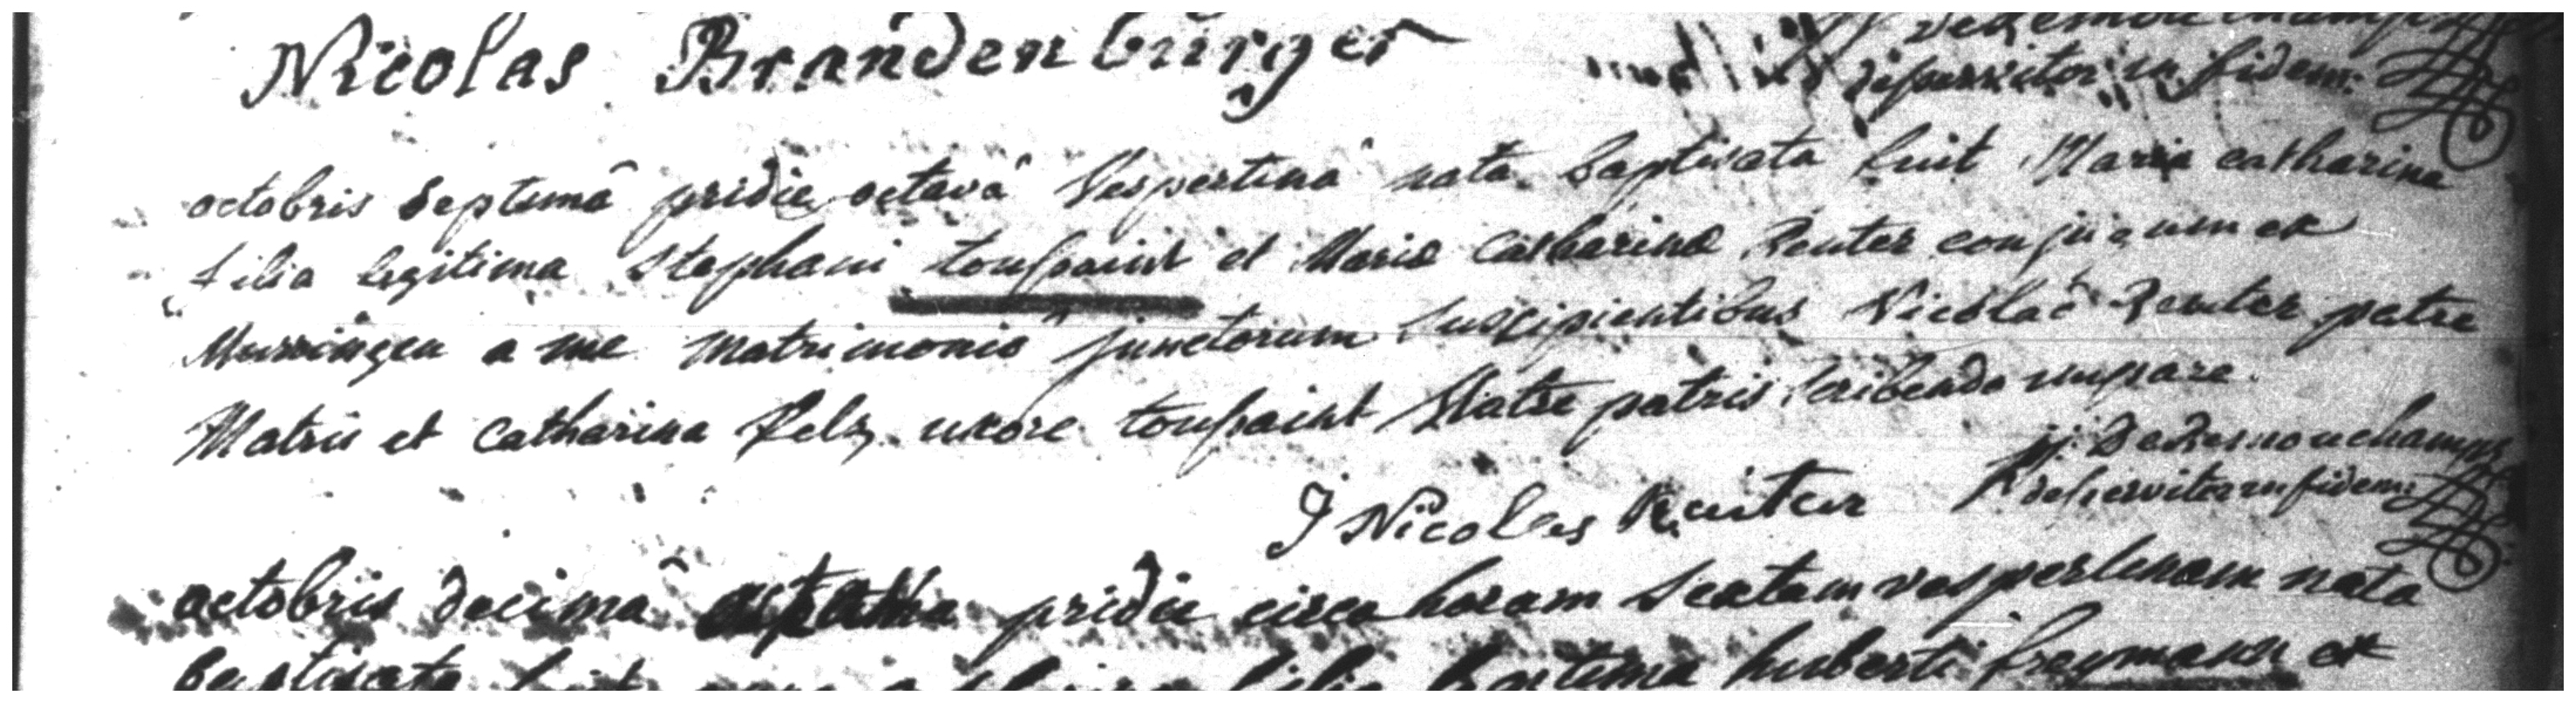 Nicolas Brandenburger
deservitor in fidem:
octobris septimâ pridie octavâ Vespertinâ nata baptisata fuit Maria catharina
filia legitima Stephani toussaint et Maria Catharina Reuter conjugum ex
Mussingen a me matrimonio junctorum suscipientibus Nicolaô Reuter patre
Matris et Catharina Pelz uxore toussaint Matre patris scribendo impare.
J Nicoles Reuter
deservitor in fidem:
octobris decimâ pridie circa horam sextam vespertinam nata
baptisata fuit filia legitima huberti freymann et